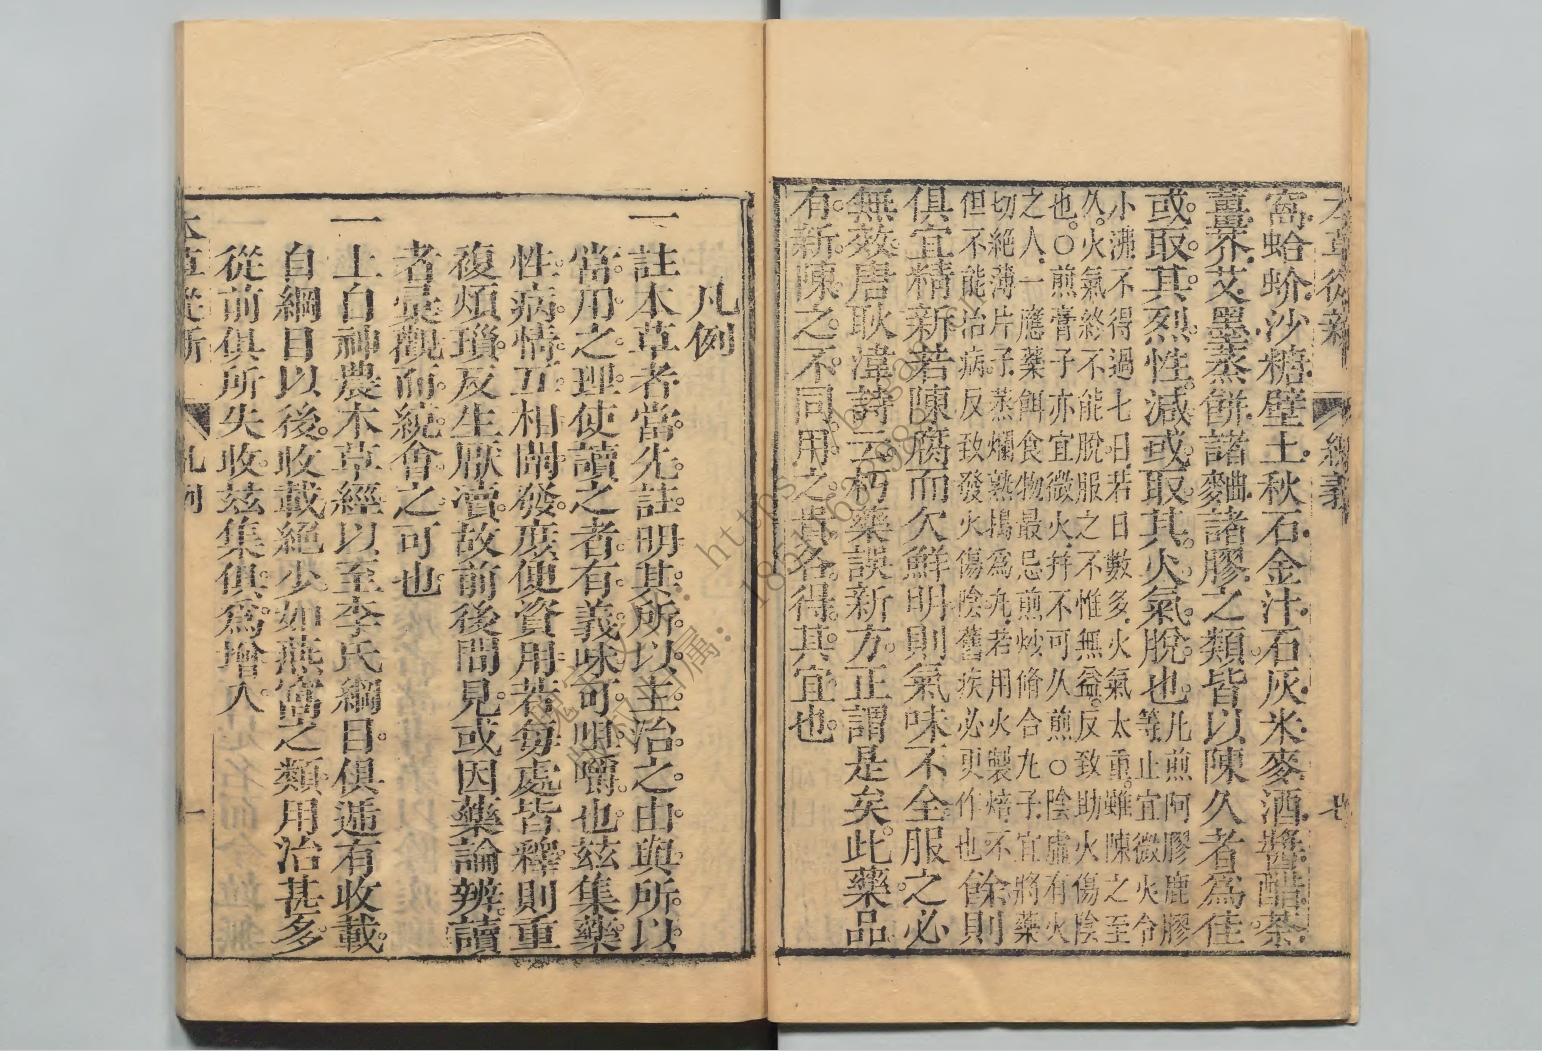 本草從新 總義
窩蛤蚧沙糖壁土秋石金汁石灰米麥酒醬醋茶
薑芥艾墨蒸餅諸麯諸膠之類皆以陳久者爲佳
或取其烈性減或取其火氣脫也凡煎阿膠鹿膠
等止宜微火令
小沸不得過七日若日數多火氣太重雖陳之至
久火氣終不能脫服之不惟無益反致助火傷陰
也○煎膏子亦宜微火幷不可久煎○陰虛有火
之人一應藥餌食物最忌煎炒脩合丸子宜將藥
切絕薄片子蒸爛熟搗爲丸若用火製焙不
但不能治病反致發火傷陰舊疾必更作也餘則
俱宜精新若陳腐而欠鮮明則氣味不全服之必
無效唐耿湋詩云朽藥誤新方正謂是矣此藥品
有新陳之不同用之貴各得其宜也
凡例
一註本草者當先註明其所以主治之由與所以
當用之理使讀之者有義味可咀嚼也茲集藥
性病情互相闡發庶使資用若每處皆釋則重
複煩瑣反生厭瀆故前後間見或因藥論辨讀
者彙觀而統會之可也
一上自神農本草經以至李氏綱目俱遞有收載
自綱目以後收載絕少如燕窩之類用治甚多
從前俱所失收茲集俱爲增入
本草從新 凡例 一